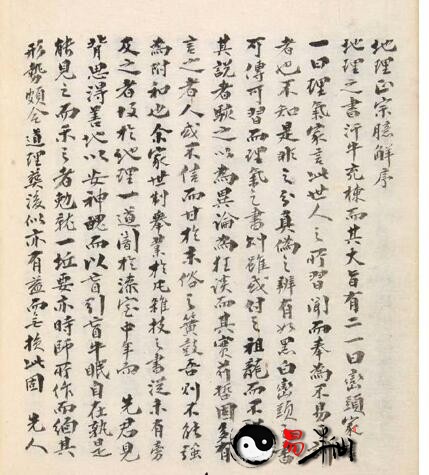 地理正宗臆解序
地理之書汗牛充棟而其大旨有二一曰巒頭家
一曰理氣家言此世人之所習聞而奉為不易
者也不知是非之分真偽之辨有如黑白巒頭之書
可傳可習而理氣之書則雖或付之祖龍而不
其說者駭之以為異論為狂談而其實前哲固多有
言之者人或不信而甘於末俗之簧鼓每則不能強
為附和也余家世制舉業於雜技之書從未有旁
及之者故於地理一道闇於漆室中年而 先君見
背思得善地以安神魄而以盲引盲牛眠自在孰是
能見之而示之者勉就一坵要亦時師所作而緬其
形勢頗合道理葬後似亦有益而無損此固 先人
易